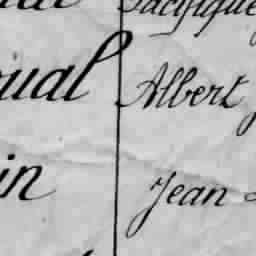 Pacifique
ual Albert
in Jean